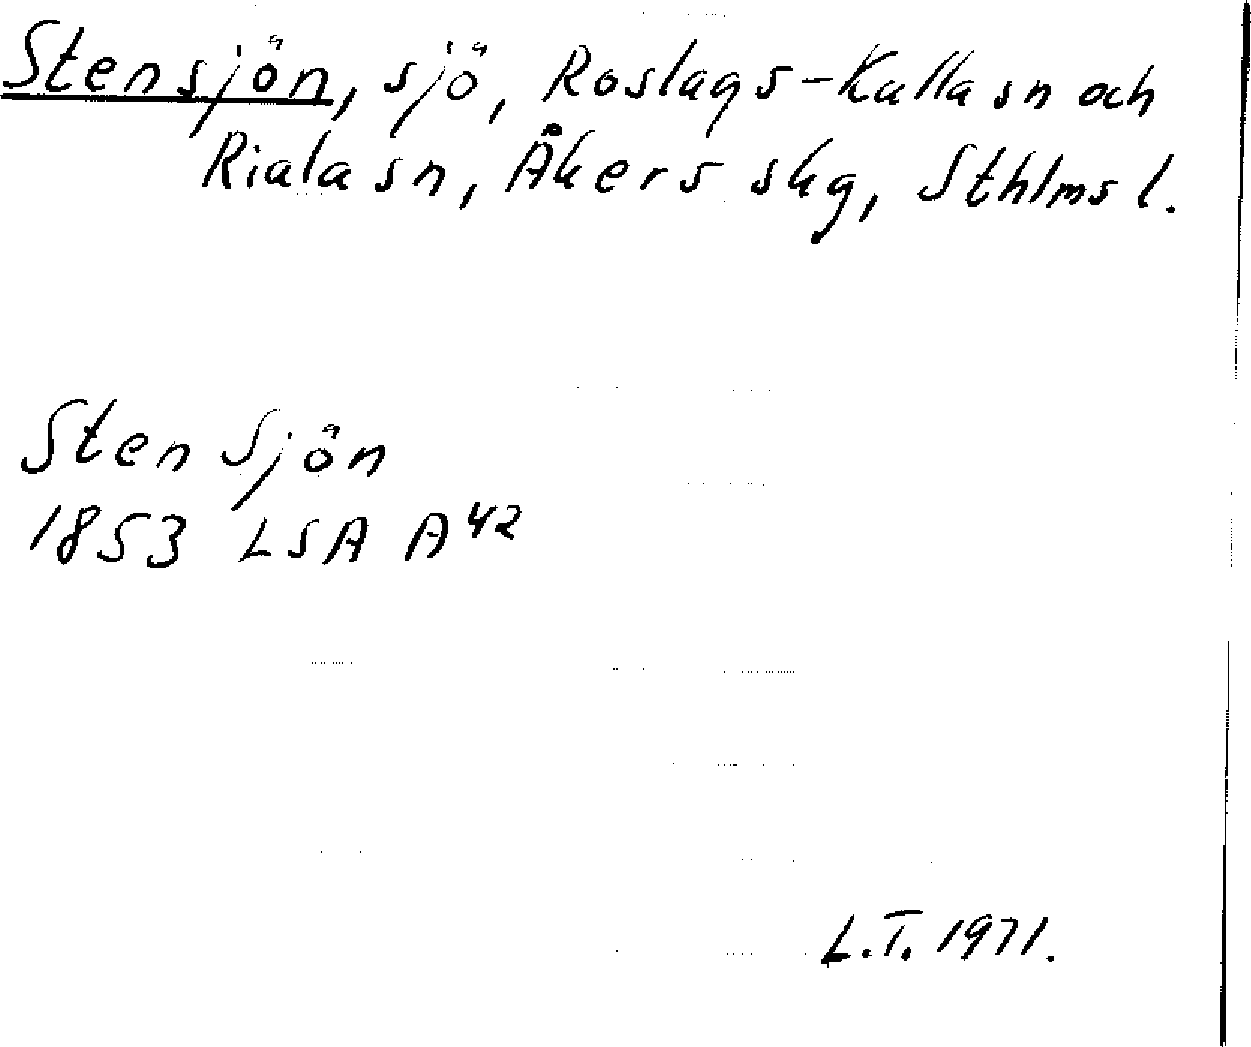 Stensjön, sjö, Roslags-Kulla sn och
Riala sn, Åkers skg, Sthlms l.
Sten Sjön
1853 LSA A42
L.T. 1971.